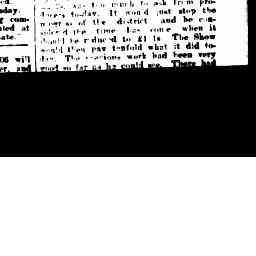 day.
g com-
nted at
ate."
06 will
er, and
was too much to ask from pro-
ducers to-day. It would just stop the
progress of the district and he con-
sidered the time has come when it
should be reduced to £1 1s. The Show
would then pay tenfold what it did to-
day. The previous work had been very
good so far as he could see. There had